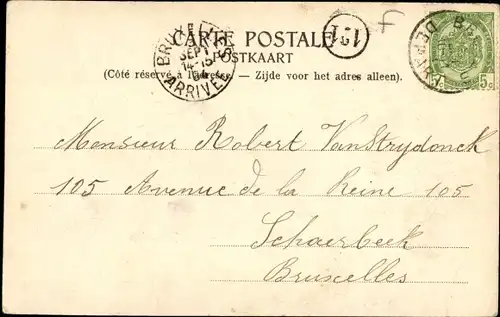 CARTE POSTALE
POSTKAART
(Côté réservé à l'adresse. — Zijde voor het adres alleen).
BRUXELLES
SEPT
14-15
04
ARRIVEE
151
5c
Monsieur Robert VanStrydonck
105 Avenue de la Reine 105
Schaerbeek
Bruxelles